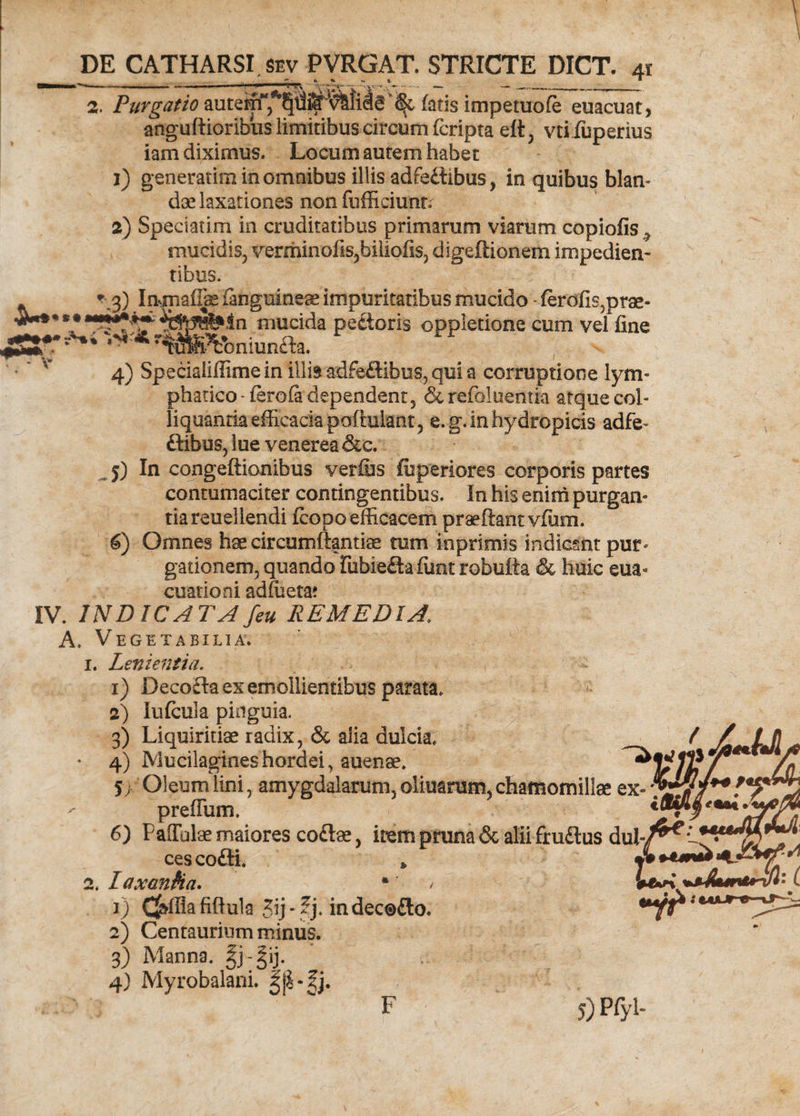 DE CATHARSI, sev PVRGAT. STRICTE DICT. 41
2. Purgatio autem, & ſatis impetuoſe euacuat,
anguſtioribus limitibus circum ſcripta eſt, vti ſuperius
iam diximus. Locum autem habet
1) generatim in omnibus illis adfectibus, in quibus blan-
dæ laxationes non ſufficiunt.
2) Speciatim in cruditatibus primarum viarum copioſis,
mucidis, verminoſis, bilioſis, digeſtionem impedien-
tibus.
3) In maſſæ ſanguineæ impuritatibus mucido-ſeroſis, præ-
in mucida pectoris oppletione cum vel ſine
coniuncta.
4) Specialiſſime in illis adfectibus, qui a corruptione lym-
phatico-ſeroſa dependent, & reſoluentia atque col-
liquantia efficacia poſtulant, e. g. in hydropicis adfe-
ctibus, lue venerea &c.
5) In congeſtionibus verſus ſuperiores corporis partes
contumaciter contingentibus. In his enim purgan-
tia reuellendi ſcopo efficacem præſtant vſum.
6) Omnes hæ circumſtantiæ tum inprimis indicant pur-
gationem, quando ſubiecta ſunt robuſta & huic eua-
cuationi adſueta:
IV. INDICATA ſeu REMEDIA.
A. VEGETABILIA.
1. Lenientia.
1) Decocta ex emollientibus parata.
2) Iuſcula pinguia.
3) Liquiritiæ radix, & alia dulcia.
4) Mucilagines hordei, auenæ.
5) Oleum lini, amygdalarum, oliuarum, chamomillæ ex-
preſſum.
6) Paſſulæ maiores coctæ, item pruna & alii fructus dul-
ces cocti.
2. Laxantia.
1) Caſſia fiſtula ʒij-℥j. in decocto.
2) Centaurium minus.
3) Manna. ℥j-℥ij.
4) Myrobalani. ℥ß-℥j.
F 5) Pſyl-